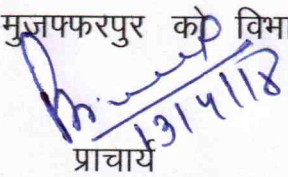 मुजफ्फरपुर को विभा
13/4/18
प्राचार्य